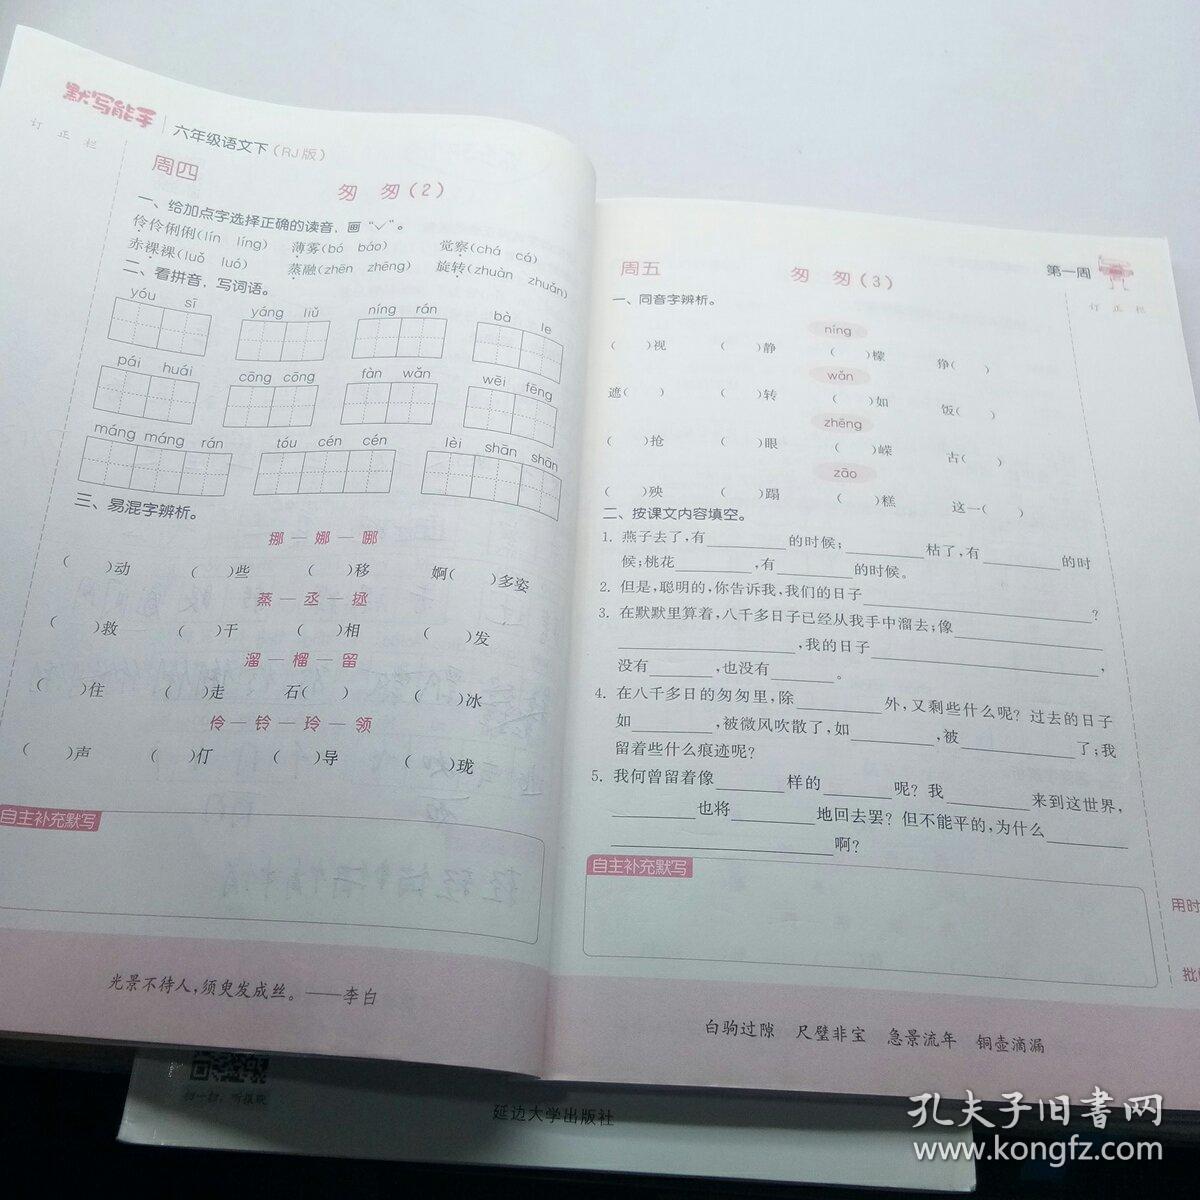 默写能手
六年级语文下(RJ版)
订正栏
周四
匆 匆(2)
一、给加点字选择正确的读音，画“✓”。
伶伶俐俐(lín líng) 薄雾(bó báo) 觉察(chá cá)
赤裸裸(luǒ luó) 蒸融(zhēn zhēng) 旋转(zhuàn zhuǎn)
二、看拼音，写词语。
yóu sī yáng liǔ níng rán bà le
pái huái cōng cōng fàn wǎn wēi fēng
máng máng rán tóu cén cén lèi shān shān
三、易混字辨析。
挪—娜—哪
( )动 ( )些 ( )移 婀( )多姿
蒸—丞—拯
( )救 ( )干 ( )相 ( )发
溜—榴—留
( )住 ( )走 石( ) ( )冰
伶—铃—玲—领
( )声 ( )仃 ( )导 ( )珑
自主补充默写
光景不待人，须臾发成丝。——李白
第一周
订正栏
周五
匆 匆(3)
一、同音字辨析。
níng
( )视 ( )静 ( )檬 狰( )
wǎn
遮( ) ( )转 ( )如 饭( )
zhēng
( )抢 ( )眼 ( )嵘 古( )
zāo
( )殃 ( )蹋 ( )糕 这一( )
二、按课文内容填空。
1. 燕子去了，有________的时候；________枯了，有________的时
候；桃花________，有________的时候。
2. 但是，聪明的，你告诉我，我们的日子________________？
3. 在默默里算着，八千多日子已经从我手中溜去；像________________
________________，我的日子________________，
没有________，也没有________。
4. 在八千多日的匆匆里，除________外，又剩些什么呢？过去的日子
如________，被微风吹散了，如________，被________了；我
留着些什么痕迹呢？
5. 我何曾留着像________样的________呢？我________来到这世界，
________也将________地回去罢？但不能平的，为什么________
________________啊？
自主补充默写
用时
白驹过隙 尺璧非宝 急景流年 铜壶滴漏
扫一扫，听报默
延边大学出版社
孔夫子旧书网
www.kongfz.com